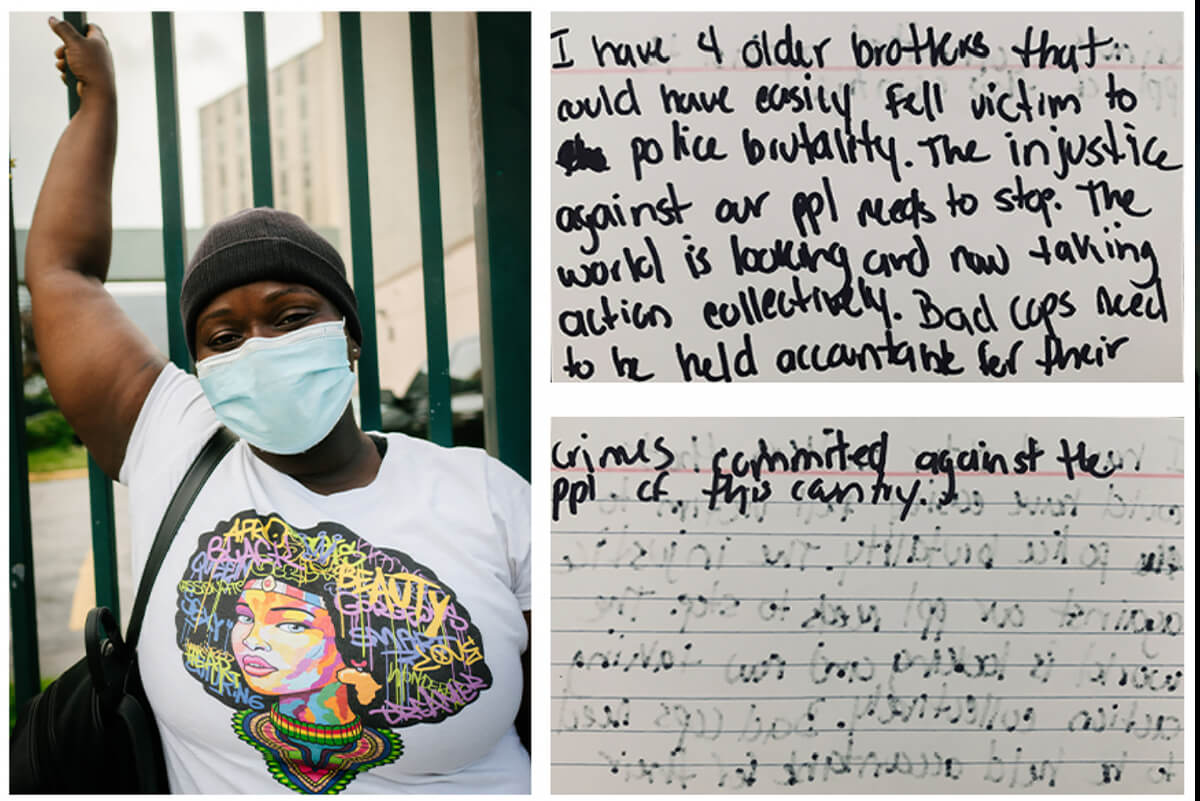 AFRO
BLACK
QUEEN
BEAUTY
GODDESS
SMART
LOVE
DREAMER
I have 4 older brothers that
could have easily fell victim to
police brutality. The injustice
against our ppl needs to stop. The
world is looking and now taking
action collectively. Bad cops need
to be held accountable for their
crimes committed against the
ppl of this country.